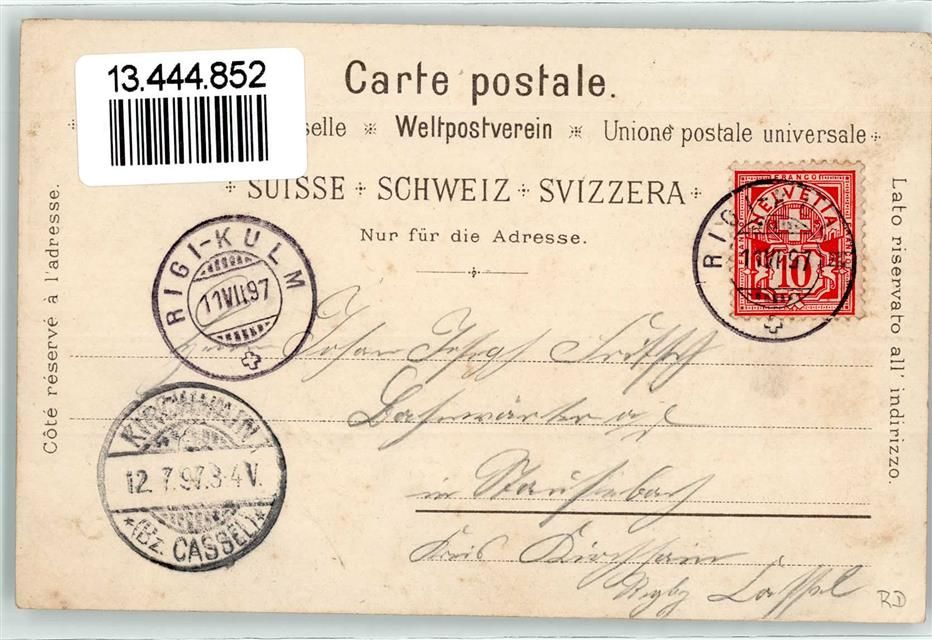 13.444.852
Carte postale.
selle ※ Weltpostverein ※ Unione postale universale
SUISSE + SCHWEIZ + SVIZZERA
Nur für die Adresse.
Côté réservé à l'adresse.
Lato riservato all' indirizzo.
FRANCO
HELVETIA
10
RIGI
11 VII 97
RIGI-KULM
11 VII 97
KIRCHHAIN
12. 7. 97. 3-4 V.
(BZ. CASSEL)
Johann Joseph
Bahnwärter a/d
in Stausebach
Kreis Kirchhain
Cassel
RD